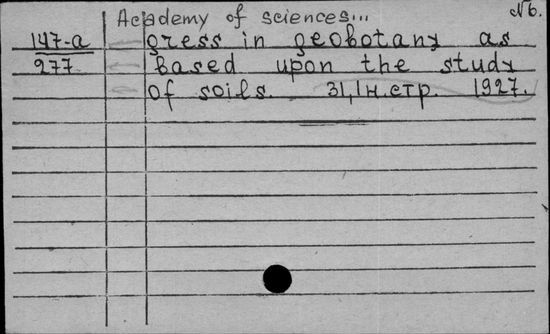 Academy of sciences... №6.
147-а gress in geobotany as
277 based upon the study
of soils. 31,1н.стр. 1927.